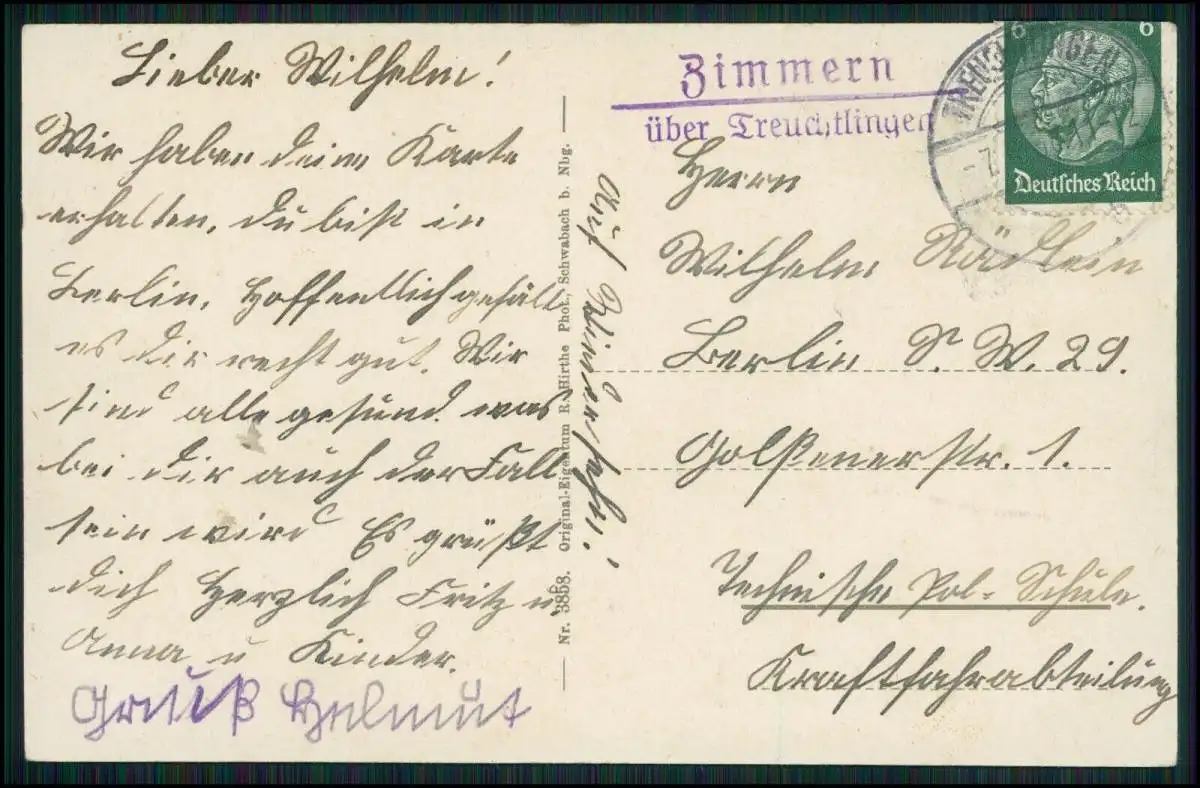 Lieber Wilhelm!
Wir haben deine Karte
erhalten, du bist in
Berlin, Hoffentlich gefällt
es dir recht gut. Wir
sind alle gesund was
bei dir auch der Fall
sein wird Es grüßt
dich Herzlich Fritz u.
Anna u Kinder.
Gruß Helmut
Auf Wiedersehn!
Nr. 3858. Original-Eigentum R. Hirthe Phot., Schwabach b. Nbg.
Zimmern
über Treuchtlingen
TREUCHTLINGEN
-7.
6 6
Deutsches Reich
Herrn
Wilhelm
Berlin S. W. 29.
Golßenerstr. 1.
Technische Pol. Schule.
Kraftfahrabteilung